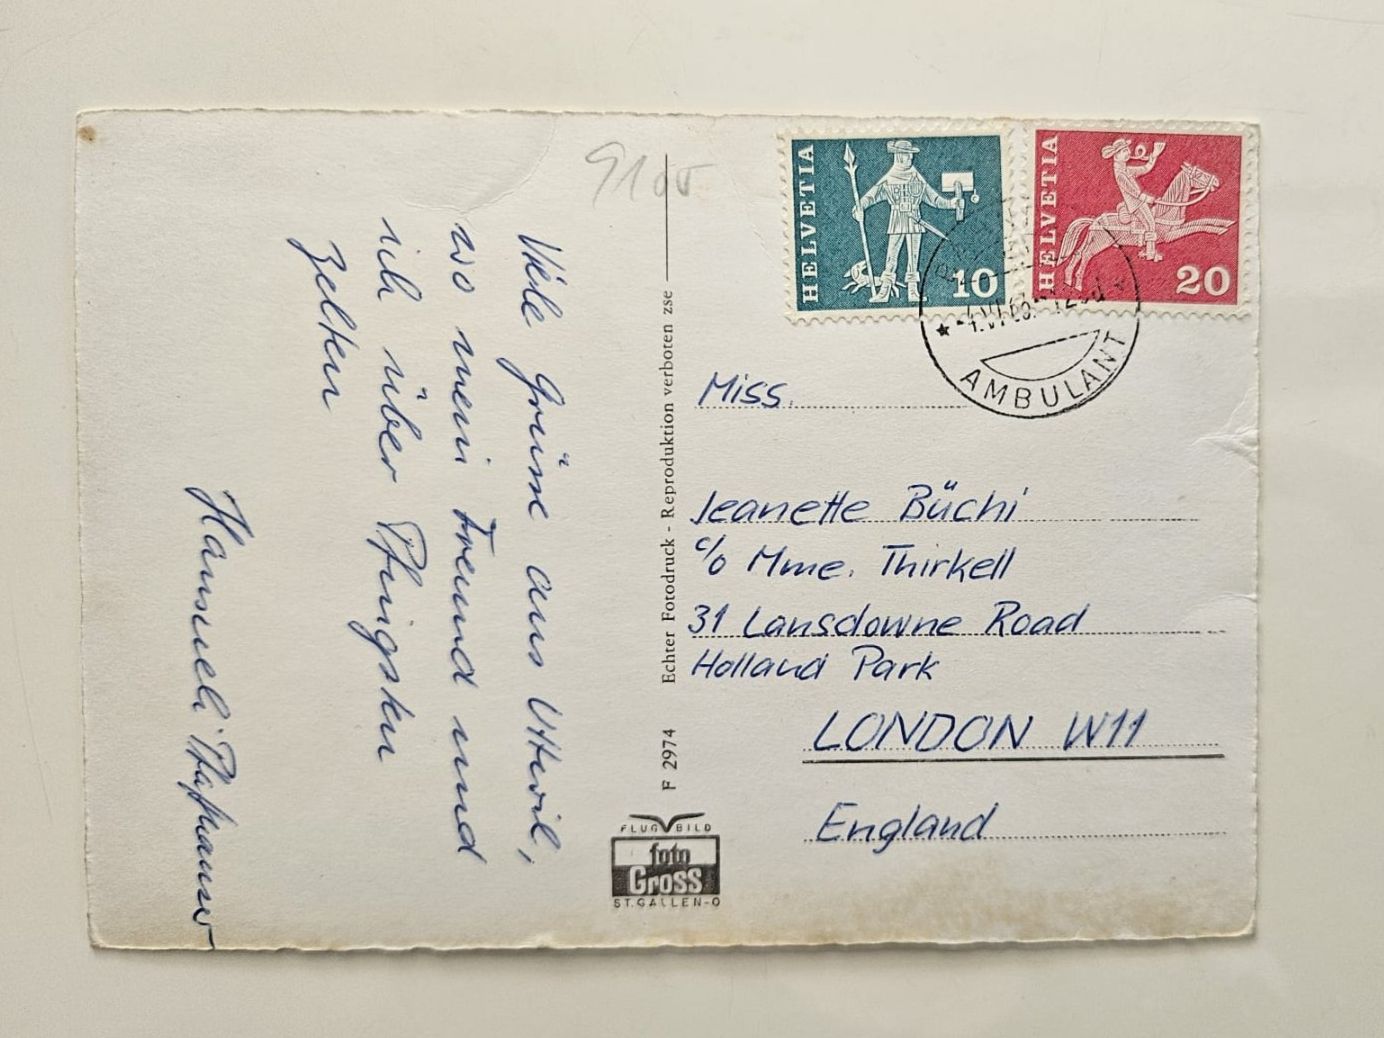 Viele Grüsse aus Uttwil,
wo mein Freund und
ich über Pfingsten
zelten
Hansueli Pfaffhauser
9100
F 2974 Echter Fotodruck - Reproduktion verboten zse
FLUG BILD
foto
Gross
ST. GALLEN-O
HELVETIA
10
HELVETIA
20
AMBULANT
Miss.
Jeanette Büchi
c/o Mme. Thirkell
31 Lansdowne Road
Holland Park
LONDON W11
England